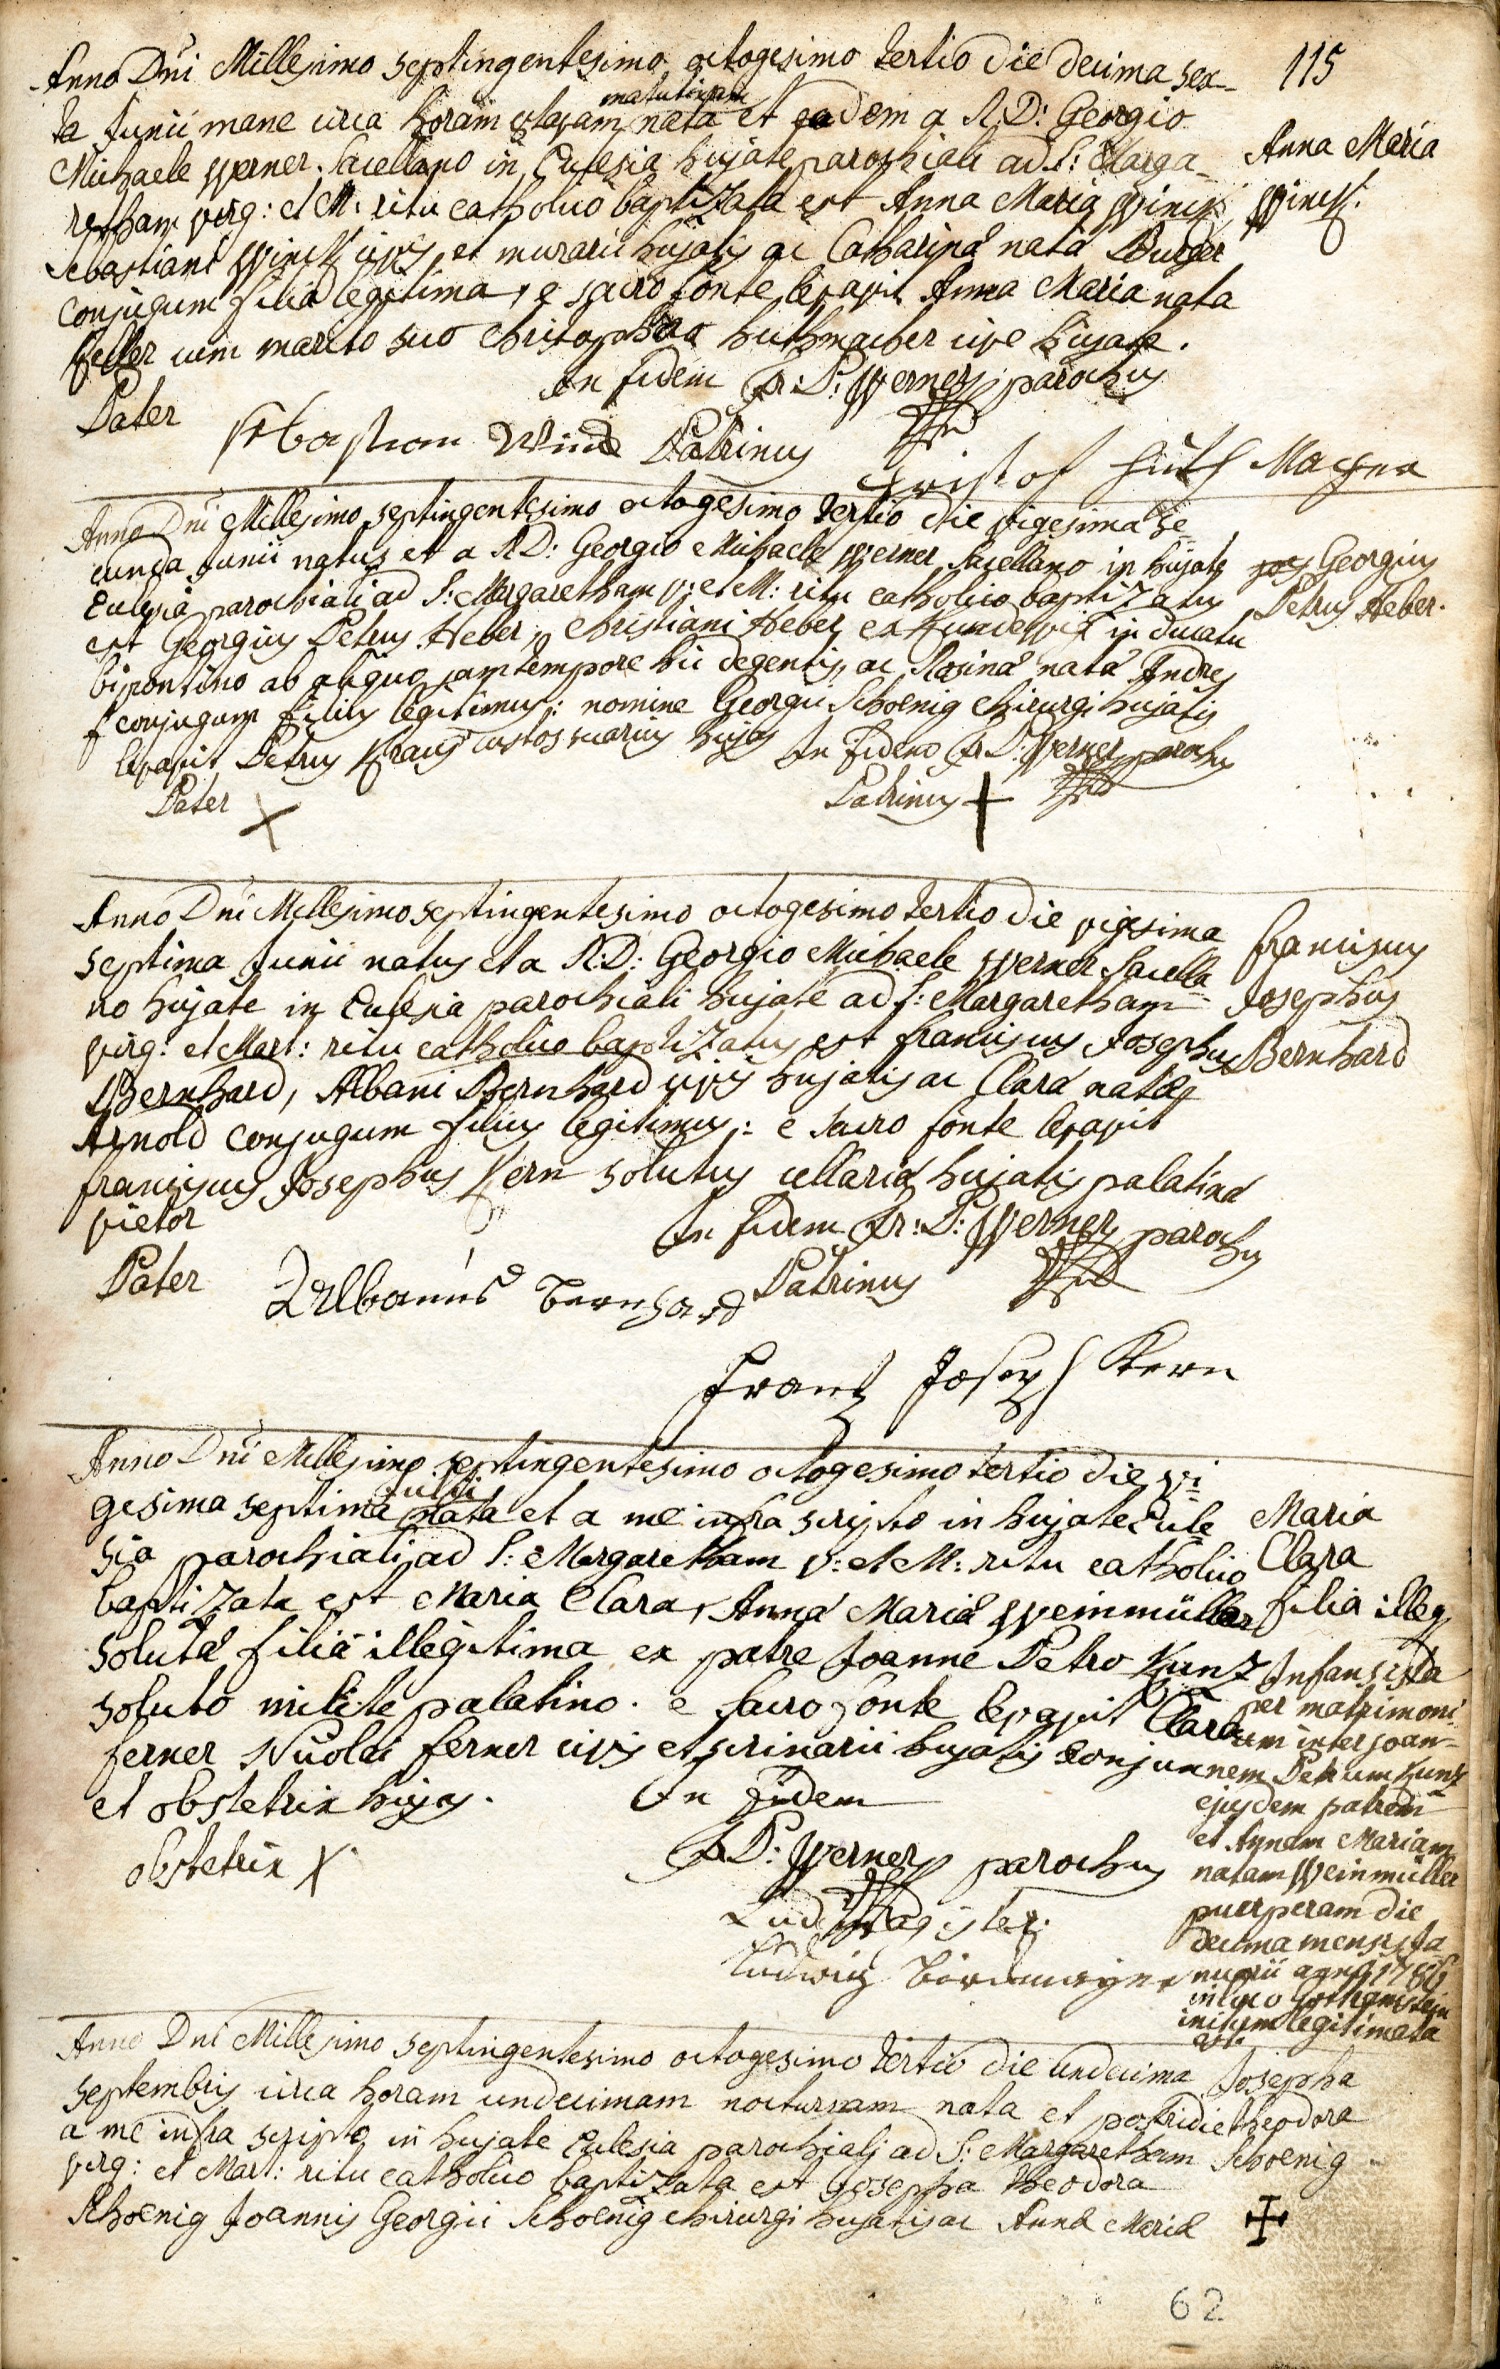 115
Anno Dni Millesimo septingentesimo octogesimo tertio die decima sex-
ta Junii mane circa horam octavam matutinam nata et eadem a R.D: Georgio
Michaele Werner Sacellano in Ecclesia hujate parochiali ad S: Marga-
retham virg: et M: ritu catholico baptizata est Anna Maria Winck
Sebastiani Winck civis et murarii hujatis ac Catharinâ natâ Burger
conjugum filia legitima, e sacro fonte levavit Anna Maria nata
feller cum marito suo Christophoro huthmacher cive hujate.
In fidem Fr: P: Werner parochus
Anna Maria
Winck.
Pater Sebastian Winck Patrinus
Cristof Huth Macher
Anno Dni Millesimo septingentesimo octogesimo tertio die vigesima se
cunda Junii natus et a R D: Georgio Michaele Werner Sacellano in hujate
Ecclesia parochiali ad S: Margaretham V: et M: ritu catholico baptizatus
est Georgius Petrus Heber, Christiani Heber ex in ducatu
bipontino ab aliquo jam tempore hic degentis, ac Rosinâ natâ Andres
conjugum filius legitimus: nomine Georgii Schoenig Chirurgi hujatis
levavit Petrus Kraus custos suarius hujas In fidem Fr P: Werner parochus
Georgius
Petrus Heber.
Pater X Patrinus +
Anno Dni Millesimo septingentesimo octogesimo tertio die vigesima
septima Junii natus et a R:D: Georgio Michaele Werner Sacella
no hujate in Ecclesia parochiali hujate ad S: Margaretham
virg: et Mart: ritu catholico baptizatus est franciscus Josephus
Bernhard, Albani Bernhard civis hujatis ac Clarâ natâ
Arnold conjugum filius legitimus: e sacro fonte levavit
franciscus Josephus Kern solutus cellariâ hujatis palatinâ
vietor In fidem Fr: P: Werner parochus
franciscus
Josephus
Bernhard
Pater Albanus Bernhard Patrinus
Frantz Joseph Kern
Anno Dni Millesimo septingentesimo octogesimo tertio die vi
gesima septima Julii nata et a me infra scripto in hujate Eccle
sia parochiali ad S: Margaretham v: et M: ritu catholico
baptizata est Maria Clara, Annâ Mariâ Weinmüller
solutâ filia illegitima ex patre Joanne Petro Kunz
soluto milite palatino. e sacro fonte levavit Clara
ferner Nicolai ferner civis et scrinarii hujatis conjunx
et obstetrix hujas. In fidem
obstetrix X Fr P: Werner parochus
Ludi Magister.
Ludwig
Maria
Clara
filia illeg
Infans ista
per matrimoni
um inter joan-
nem Petrum Kunz
ejusdem patrem
et Annam Mariam
natam Weinmüller
puerperam die
decima mensis Ja
nuarii anni 1786
in loco
initum legitimata
est.
Anno Dni Millesimo septingentesimo octogesimo tertio die undecima
septembris circa horam undecimam nocturnam nata et postridie
a me infra scripto in hujate Ecclesia parochiali ad S: Margaretham
virg: et Mart: ritu catholico baptizata est Josepha Theodora
Schoenig Joannis Georgii Schoenig chirurgi hujatis ac Annâ Mariâ
Josepha
Theodora
Schoenig
62